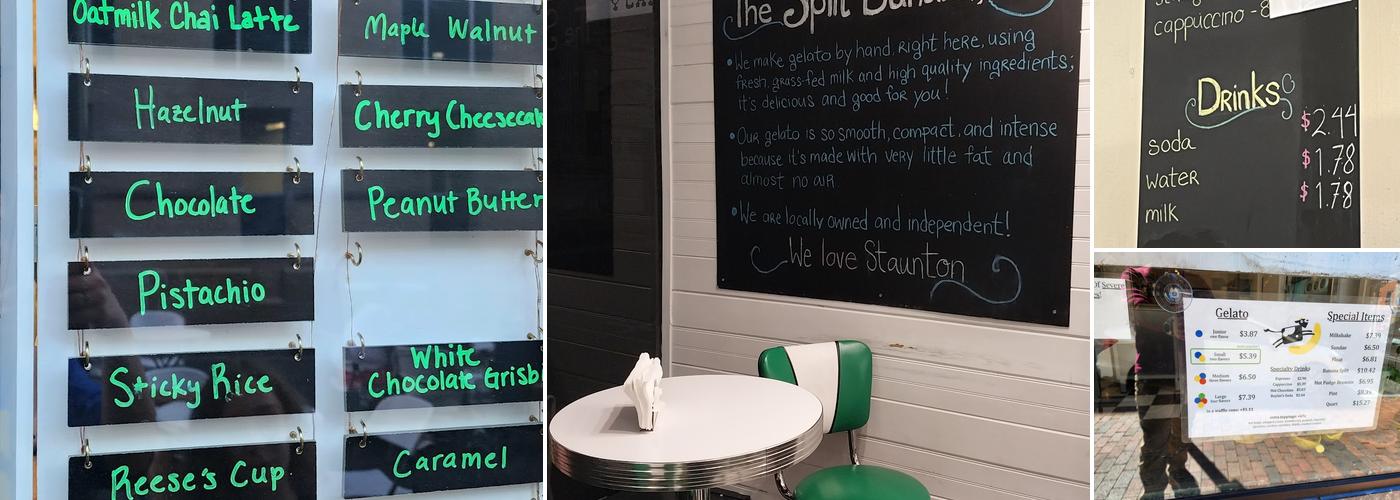 Oatmilk Chai Latte
Hazelnut
Chocolate
Pistachio
Sticky Rice
Reese's Cup
Maple Walnut
Cherry Cheesecak
Peanut Butter
White
Chocolate Grisbi
Caramel
The Split Banana
• We make gelato by hand, right here, using
fresh, grass-fed milk and high quality ingredients;
it's delicious and good for you!
• Our gelato is so smooth, compact, and intense
because it's made with very little fat and
almost no air
• We are locally owned and independent!
We love Staunton
cappuccino - 8
Drinks
soda $2.44
water $1.78
milk $1.78
of Severe
Gelato
Junior $3.87
Small $5.39
Medium $6.50
Large $7.39
Special Items
Milkshake
Sundae $6.50
Float $6.81
Banana Split $10.42
Hot Fudge Brownie $6.95
Pint
Quart $15.27
Specialty Drinks
Espresso
Cappuccino
Hot Chocolate